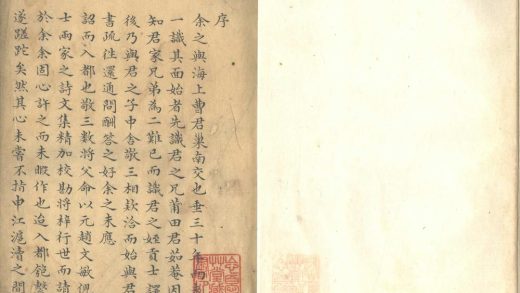 序
余之與海上曹君巢南交也垂三十年而
一識其面始者先識君之兄莆田君茹菴因
知君家兄弟為二難已而識君之姪貢士諤
後乃與君之子中舍敬三相欵洽而始與君
書疏往還通問酬答之好余之未應
詔而入都也敬三數將父命以元趙文敏倪
士兩家之詩文集精加校勘將梓行世而請
於余余固心許之而未暇作也迨入都匏繫
遂蹉跎矣然其心未嘗不申江滬瀆之間